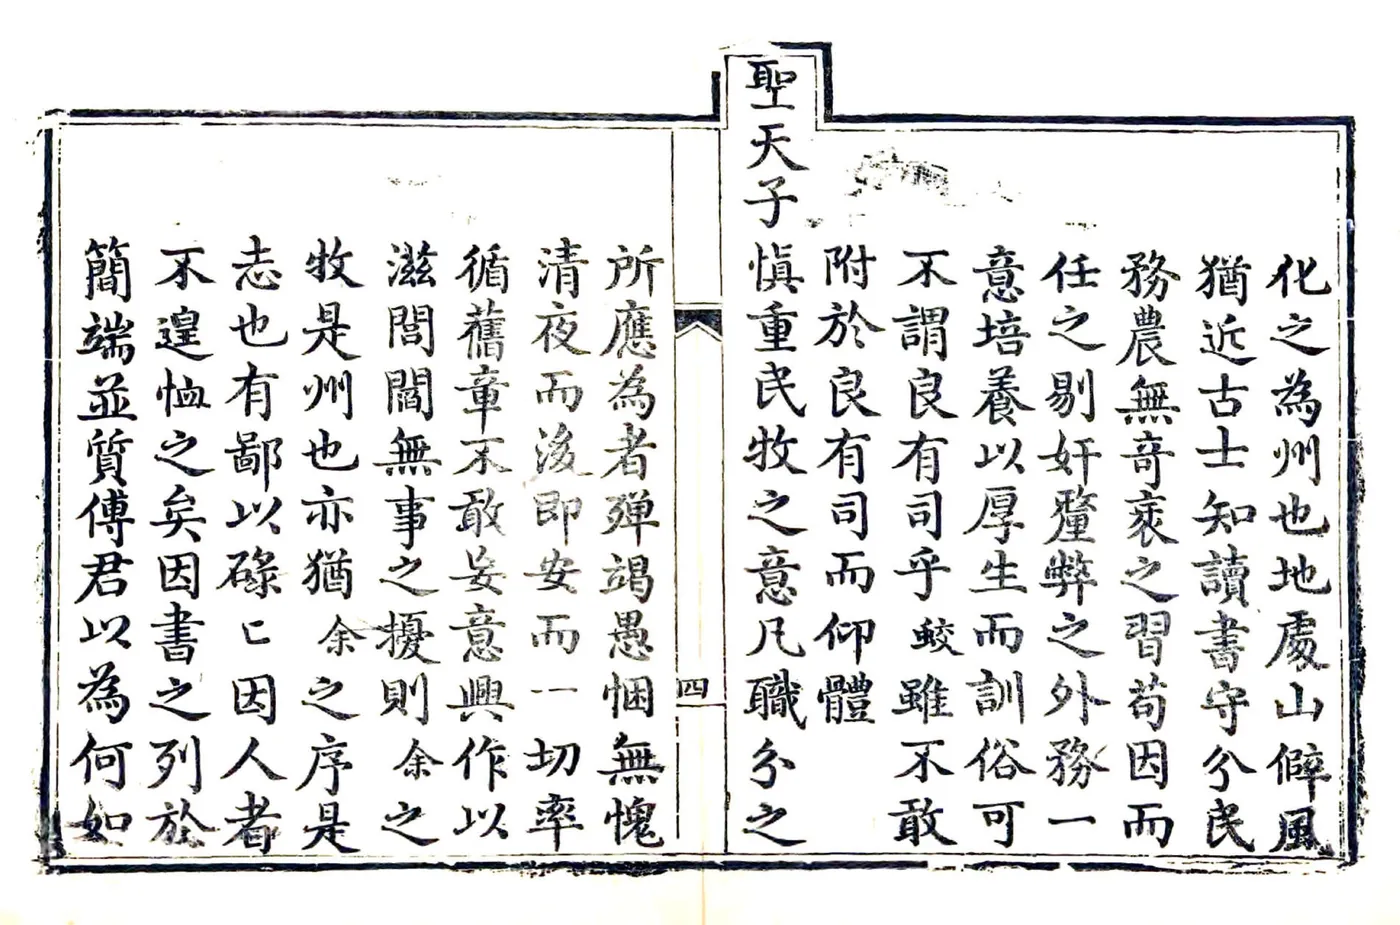 化之為州也地處山僻風
猶近古士知讀書守分民
務農無竒衺之習苟因而
任之剔奸釐弊之外務一
意培養以厚生而訓俗可
不謂良有司乎鮫雖不敢
附於良有司而仰體
聖天子慎重民牧之意凡職分之
四
所應為者殫竭愚悃無愧
清夜而後即安而一切率
循舊章不敢妄意興作以
滋閭閻無事之擾則余之
牧是州也亦猶余之序是
志也有鄙以碌亡因人者
不遑恤之矣因書之列於
簡端並質傅君以為何如